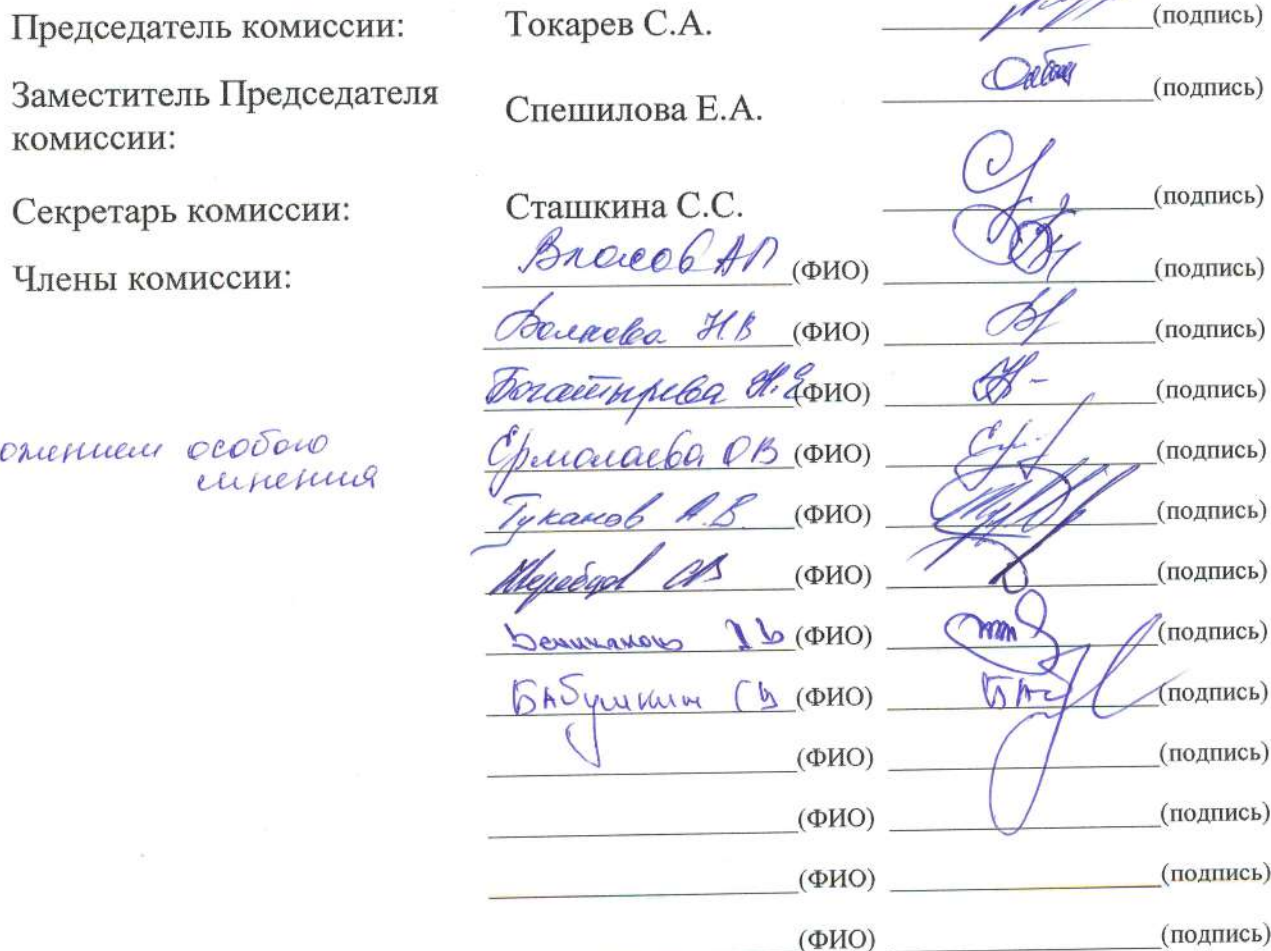 Председатель комиссии: Токарев С.А. (подпись)
Заместитель Председателя
комиссии: Спешилова Е.А. (подпись)
Секретарь комиссии: Сташкина С.С. (подпись)
Члены комиссии: Власов АП (ФИО) (подпись)
Волкова Н.В (ФИО) (подпись)
Богатырева Н.Е (ФИО) (подпись)
ожением особого Ермолаева ОВ (ФИО) (подпись)
мнения
Туканов А.В. (ФИО) (подпись)
Жеребцов ОВ (ФИО) (подпись)
(ФИО) (подпись)
БАбушкин (ФИО) (подпись)
(ФИО) (подпись)
(ФИО) (подпись)
(ФИО) (подпись)
(ФИО) (подпись)